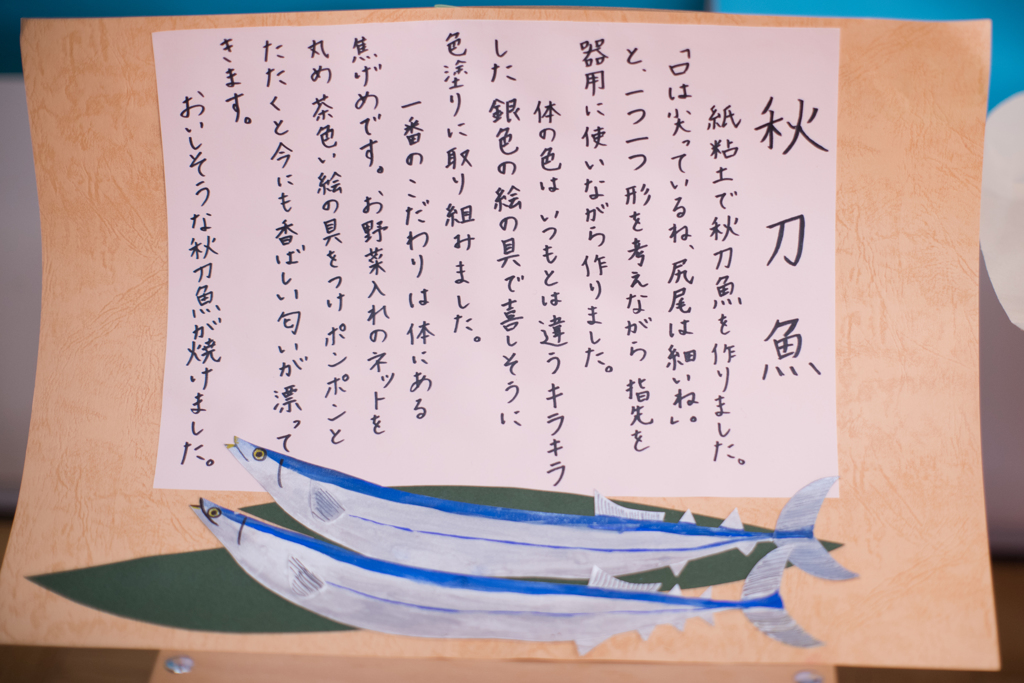 秋刀魚
紙粘土で秋刀魚を作りました。
「口は尖っているね、尻尾は細いね。」
と、一つ一つ形を考えながら指先を
器用に使いながら作りました。
体の色はいつもとは違うキラキラ
した銀色の絵の具で喜しそうに
色塗りに取り組みました。
一番のこだわりは体にある
焦げめです。お野菜入れのネットを
丸め茶色い絵の具をつけポンポンと
たたくと今にも香ばしい匂いが漂って
きます。
おいしそうな秋刀魚が焼けました。